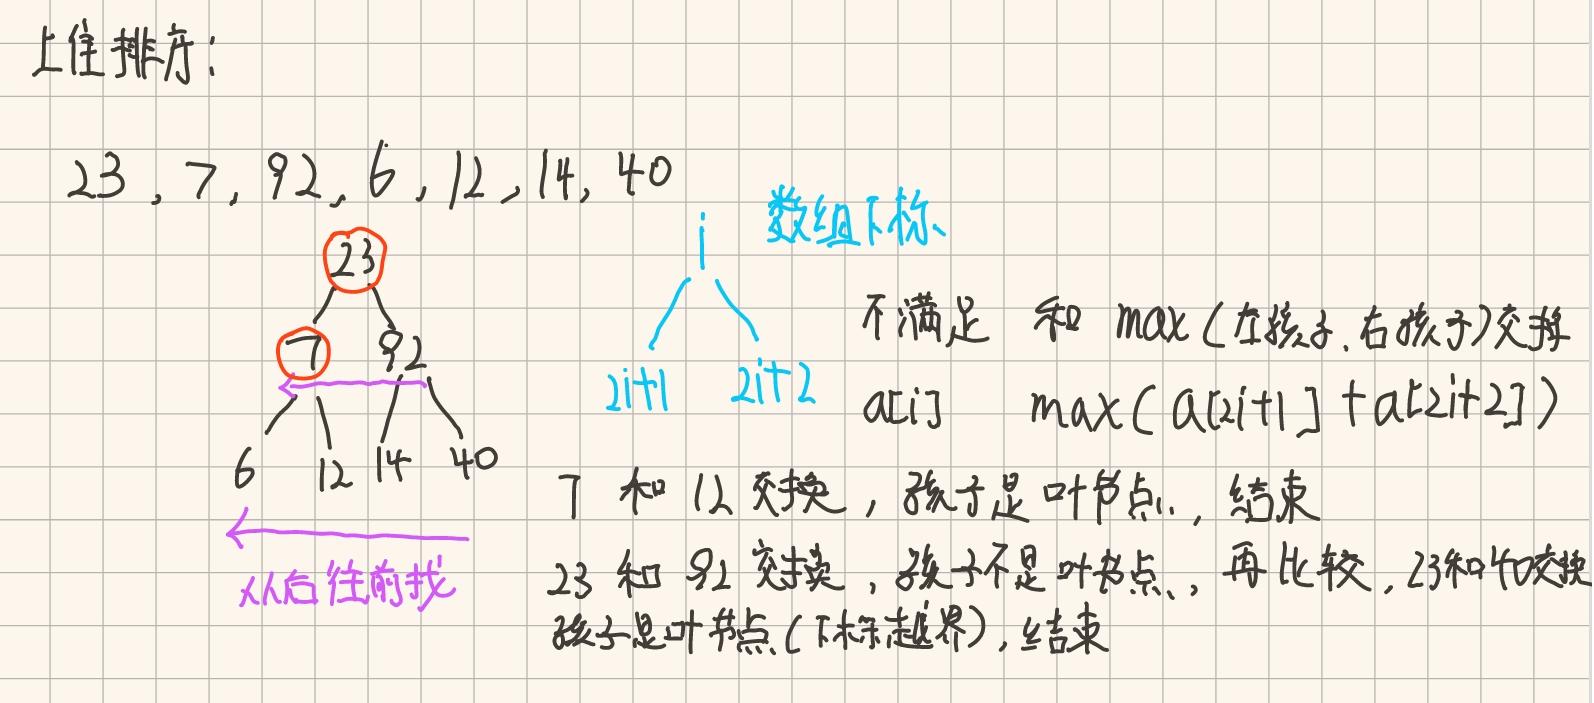 上住排序:
23 , 7 , 92 , 6 , 12 , 14 , 40
23
7 92
6 12 14 40
从后往前找
i 数组下标
2i+1 2i+2
不满足 和 max(左孩子.右孩子)交换
a[i] max(a[2i+1] + a[2i+2])
7 和 12 交换 , 孩子是叶节点 , 结束
23 和 92 交换 , 孩子不是叶节点 , 再比较 , 23和40交换
孩子是叶节点(下标越界) , 结束